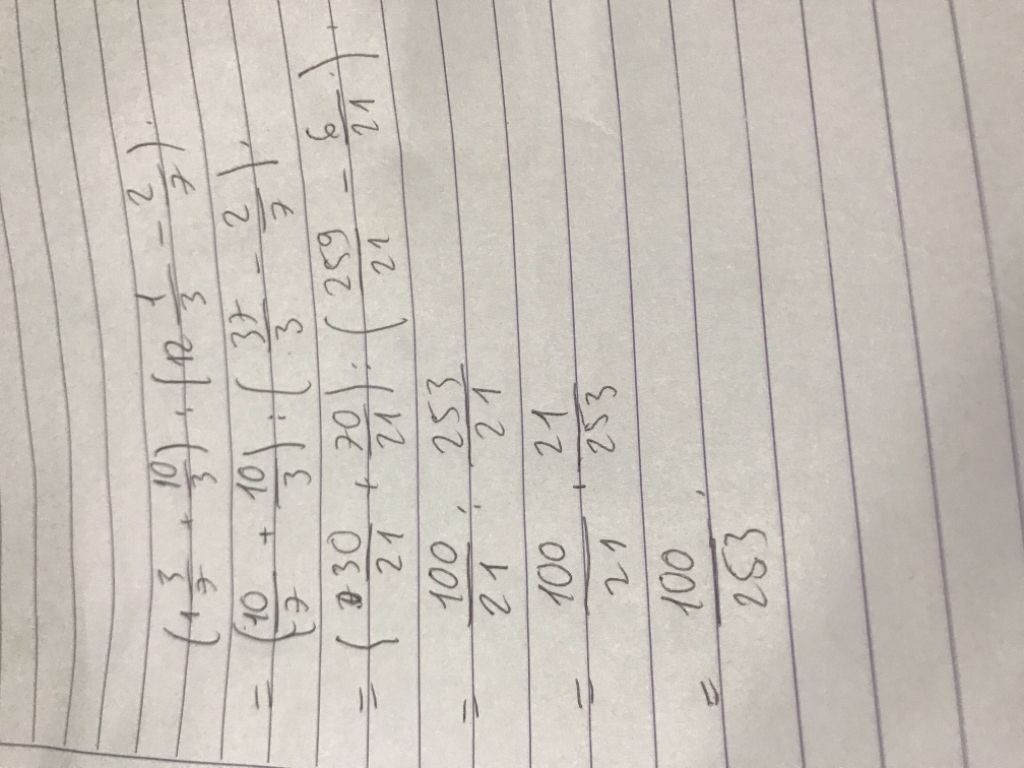 (1 3/7 + 10/3) : (12 1/3 - 2/7).
= (10/7 + 10/3) : (37/3 - 2/7).
= (30/21 + 70/21) : (259/21 - 6/21).
= 100/21 : 253/21
= 100/21 . 21/253
= 100/253.